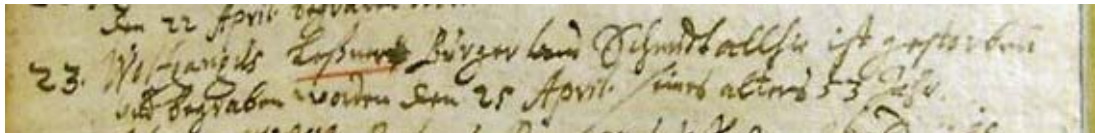 den 22 April begraben
23. Wolfgangus Leßner Bürger und Schmidt allhie ist gestorben
und begraben worden den 25 April. seines alters 53 Jahr.